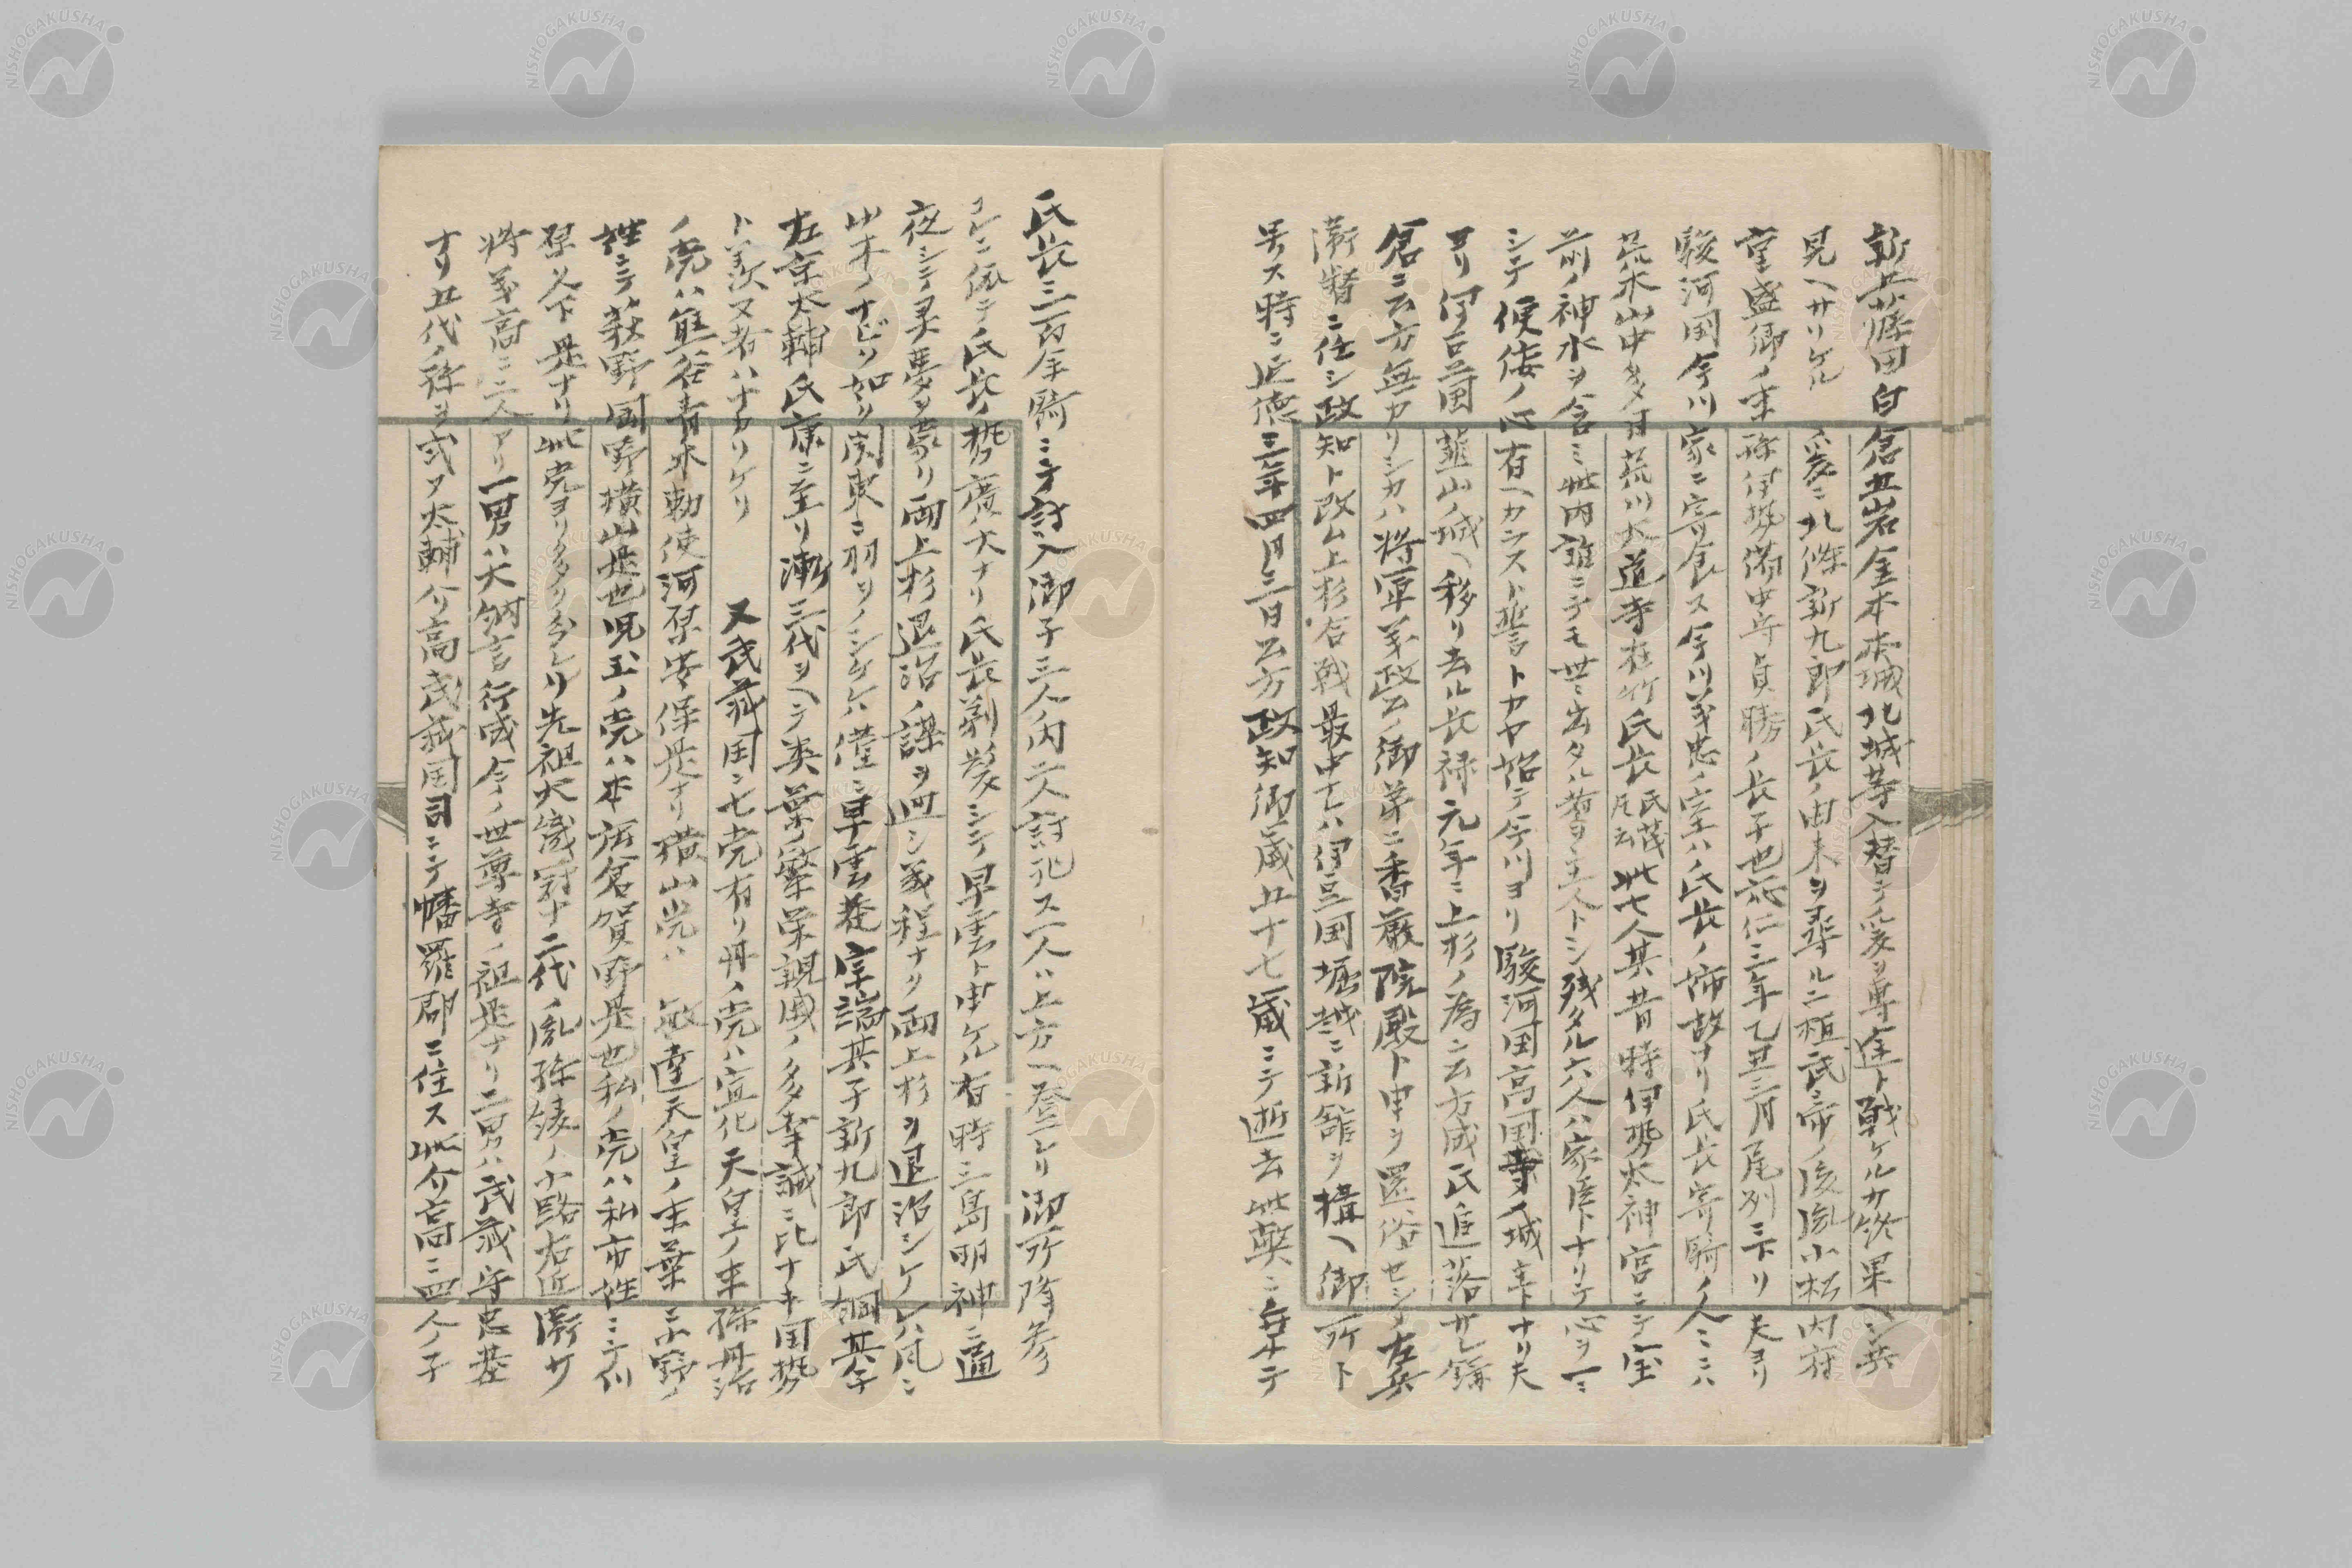 新五藤田白倉五岩金本本城北城等入替テ爰ヲ専途ト戦ケルカ終果ヘシ共
見ヘサリケル 爰ニ北條新九郎氏長ノ由来ヲ尋ルニ桓武帝ノ後胤小松内府
重盛御ノ末孫伊勢備中守貞勝ノ長子也応仁三年乙丑三月尾州ニ下リ夫ヨリ
駿河国今川家ニ寄食ス今川義忠ノ室ハ氏長ノ姉故ナリ氏長寄騎ノ人ミニハ
荒木山中多目荒川大道寺在竹氏長氏茂尼云此七人其昔時伊勢太神宮ニテ宝
前ノ神水ヲ含ミ此内誰ニテモ世ニ出タル者ヲ主人トシ残タル六人ハ家臣トナリテ心ヲ一ニ
シテ便佞ノ心有ヘカラスト誓トカヤ始テ今川ヨリ駿河国高国寺ノ城主トナリ夫
ヨリ伊豆国韮山ノ城ヘ移リ去ル長禄元年ニ上杉ノ為ニ公方成氏追落サレ鎌
倉ニ公方無カリシカハ将軍義政公ノ御弟ニ香厳院殿ト申ヲ還俗セシメ左兵
衛督ニ任シ政知ト改ム上杉合戦最中ナレハ伊豆国堀越ニ新館ヲ構ヘ御所ト
号ス時ニ延徳三年四月三日公方政知御歳五十七歳ニテ逝去此弊ニ乗テ
氏長三百余騎ニテ討入御子三人ノ内一人討死ス一人ハ上方ヘ登レリ御所降参
コレニ依テ氏長ノ勢廣大ナリ氏長剃髪シテ早雲ト申ケル有時三島明神ニ通
夜シテ灵夢ヲ蒙リ両上杉退治ノ謀ヲ廻シ義程ナク両上杉ヲ退治シケレハ風ニ
草木ノナビク如ク関東ニ羽ヲノシケレハ僅ニ早雲菴宗瑞其子新九郎氏綱其子
左京太輔氏康ニ至リ漸三代ヲヘテ类葉ノ繁栄親戚ノ多幸誠ニ比ナキ国勢
ト羨又者ハナカリケリ 又武蔵国ニ七党有リ丹ノ党ハ宣化天皇ノ末孫丹治
ノ党ハ熊谷青木勅使河原安保是ナリ横山党ハ 敏達天皇ノ末葉ニ小野ノ
姓ニテ荻野国野横山是也児玉ノ党ハ本庄倉賀野是也私ノ党ハ私市姓ニテ川
原久下是ナリ此党ヨリ多ク分レリ先祖大織冠十二代ノ胤孫綾ノ小路右近衛サ
将義高ニ二人アリ一男ハ大納言行成今ノ世尊寺ノ祖是ナリ二男ハ武蔵守忠基
ナリ五代ノ孫ヲ式ア太輔介高武蔵国司ニテ幡羅郡ニ住ス此介高ニ四人ノ子